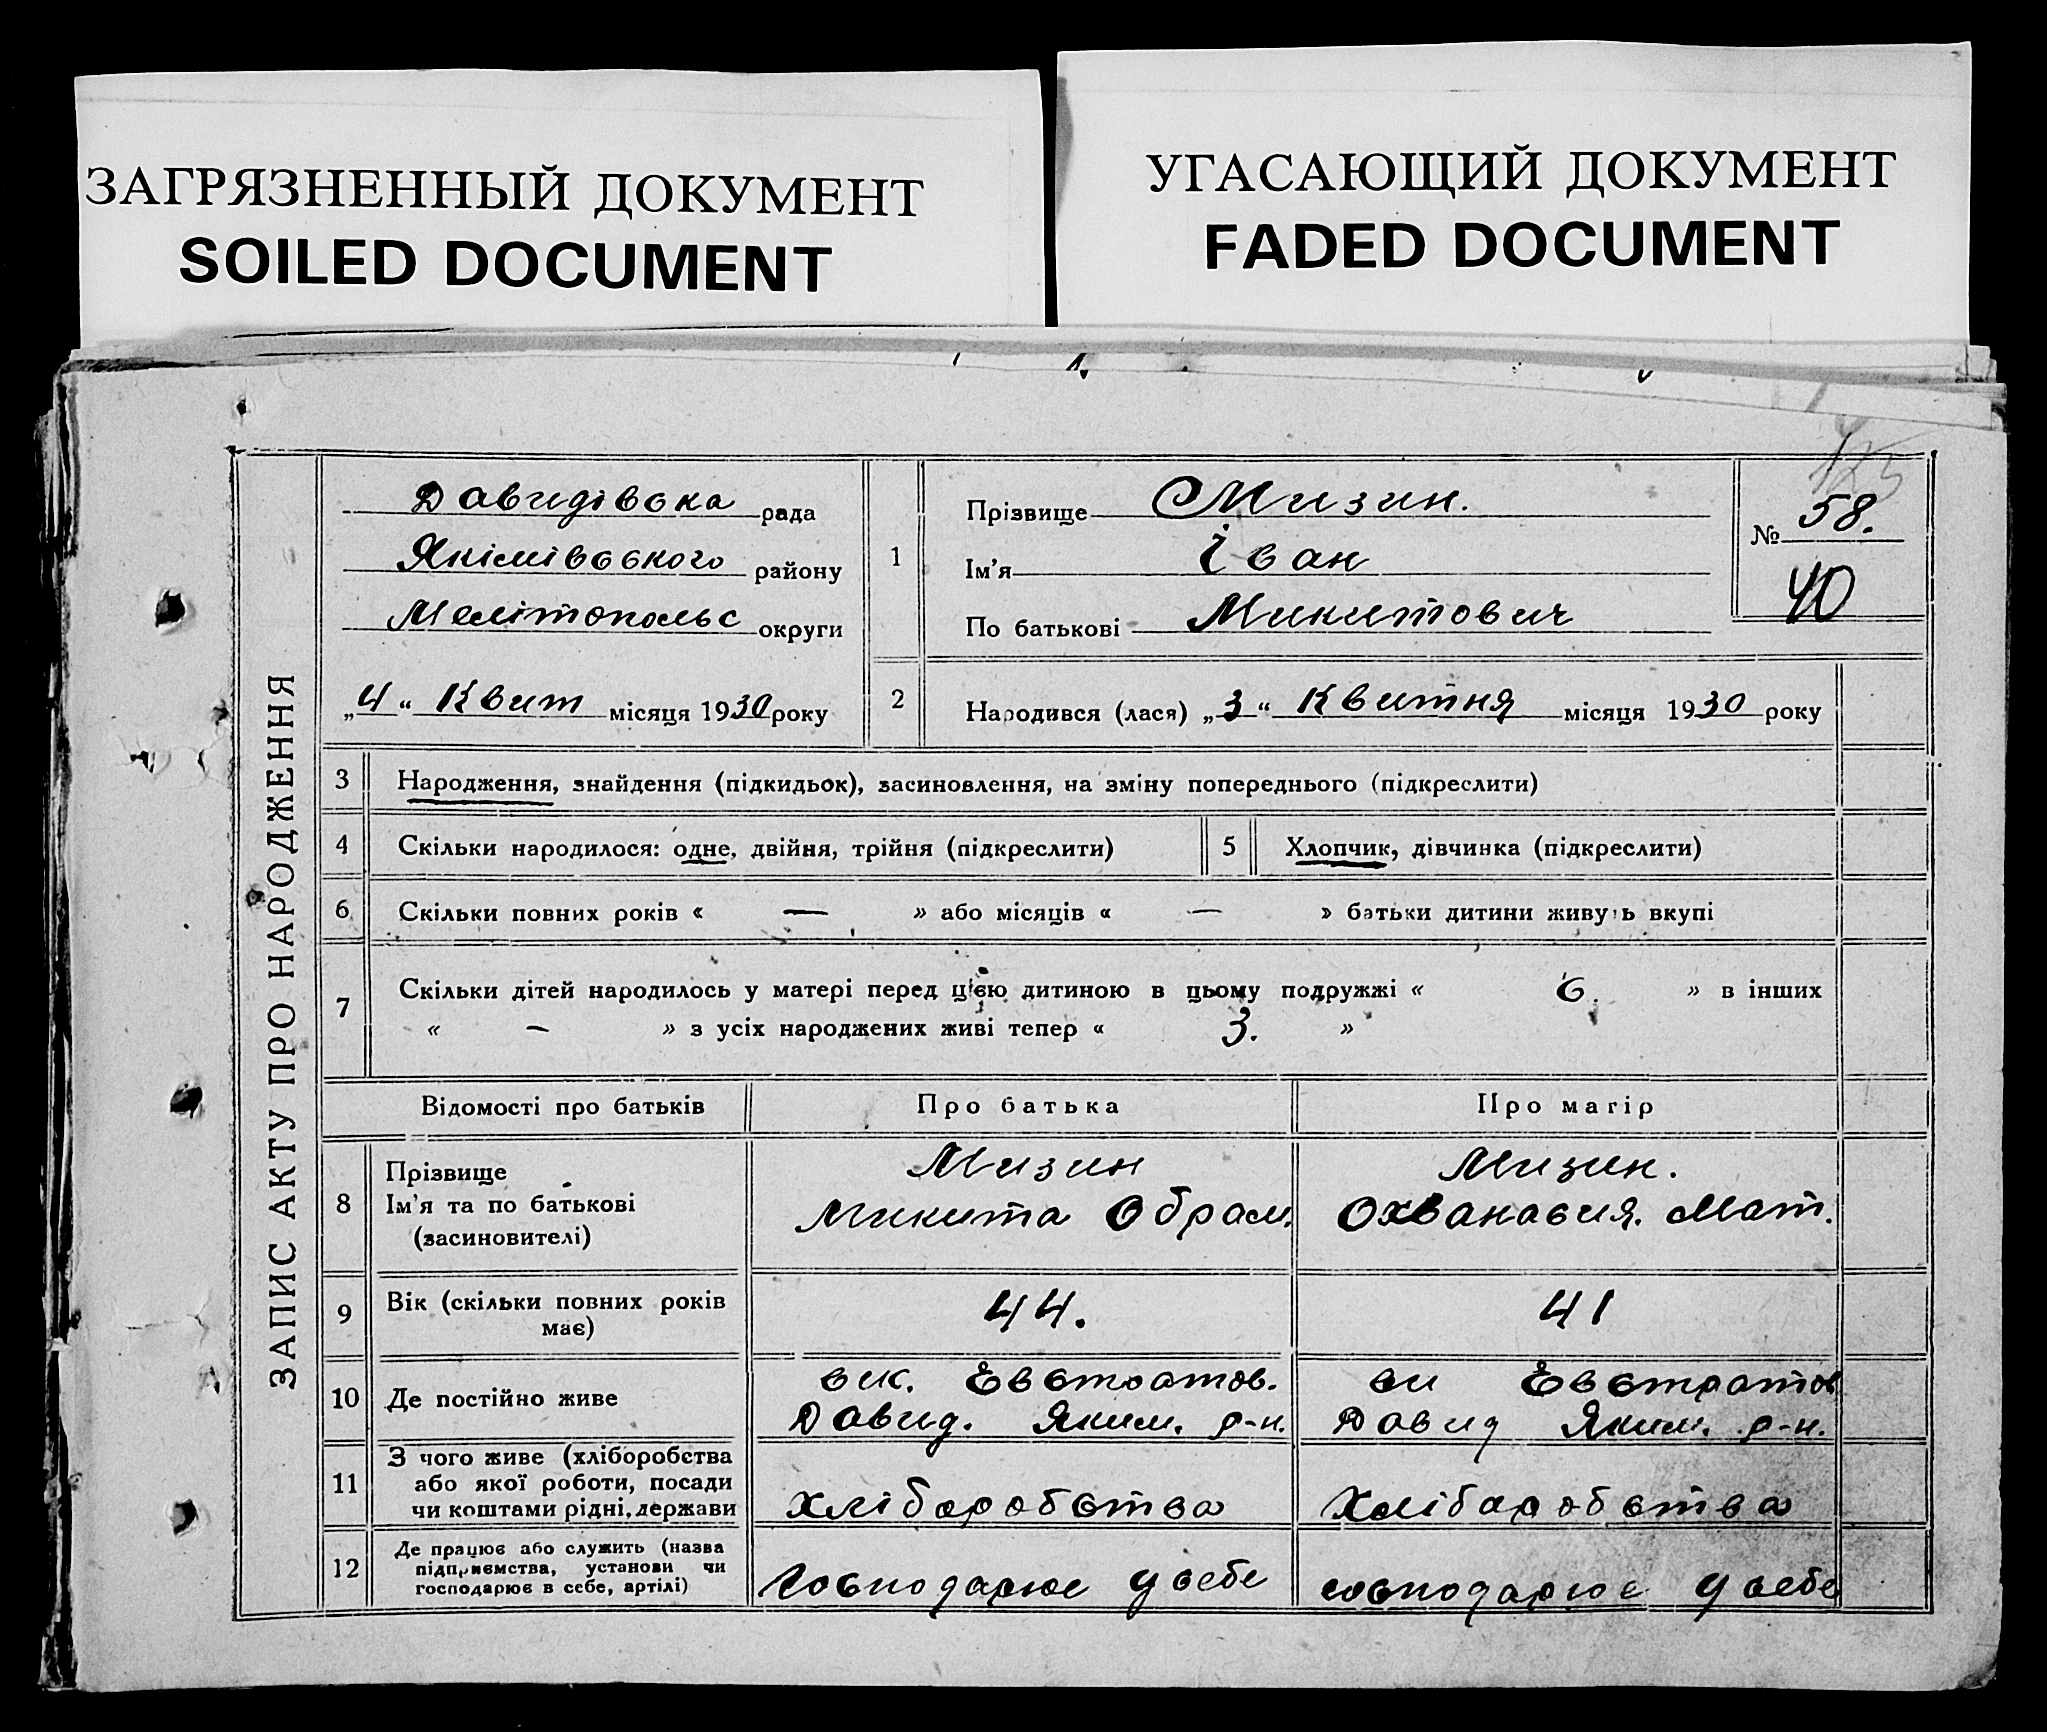 ЗАГРЯЗНЕННЫЙ ДОКУМЕНТ
SOILED DOCUMENT
УГАСАЮЩИЙ ДОКУМЕНТ
FADED DOCUMENT
ЗАПИС АКТУ ПРО НАРОДЖЕННЯ
Давидівська рада
Якімівського району
Мелітопольс округи
„4“ Квит місяця 1930 року
1
Прізвище Мизин.
Ім'я Іван
По батькові Микитович
123
№ 58.
40
2 Народився (лася) „3“ Квитня місяця 1930 року
3 Народження, знайдення (підкидьок), засиновлення, на зміну попереднього (підкреслити)
4 Скільки народилося: одне, двійня, трійня (підкреслити) 5 Хлопчик, дівчинка (підкреслити)
6 Скільки повних років « — » або місяців « — » батьки дитини живуть вкупі
7 Скільки дітей народилось у матері перед цією дитиною в цьому подружжі « 6. » в інших
« – » з усіх народжених живі тепер « 3. »
Відомості про батьків Про батька Про матір
8 Прізвище
Ім'я та по батькові
(засиновителі)
Мизин
Микита Обрам.
Мизин.
Охванасия. Мат.
9 Вік (скільки повних років
має)
44. 41
10 Де постійно живе
вис. Евстратов.
Давид. Яким. р-н.
ви Евстратов
Давид Яким. р-н.
11 З чого живе (хліборобства
або якої роботи, посади
чи коштами рідні, держави
хліборобства Хліборобства
12 Де працює або служить (назва
підприємства, установи чи
господарює в себе, артілі)
Господарює у себе господарює у себе